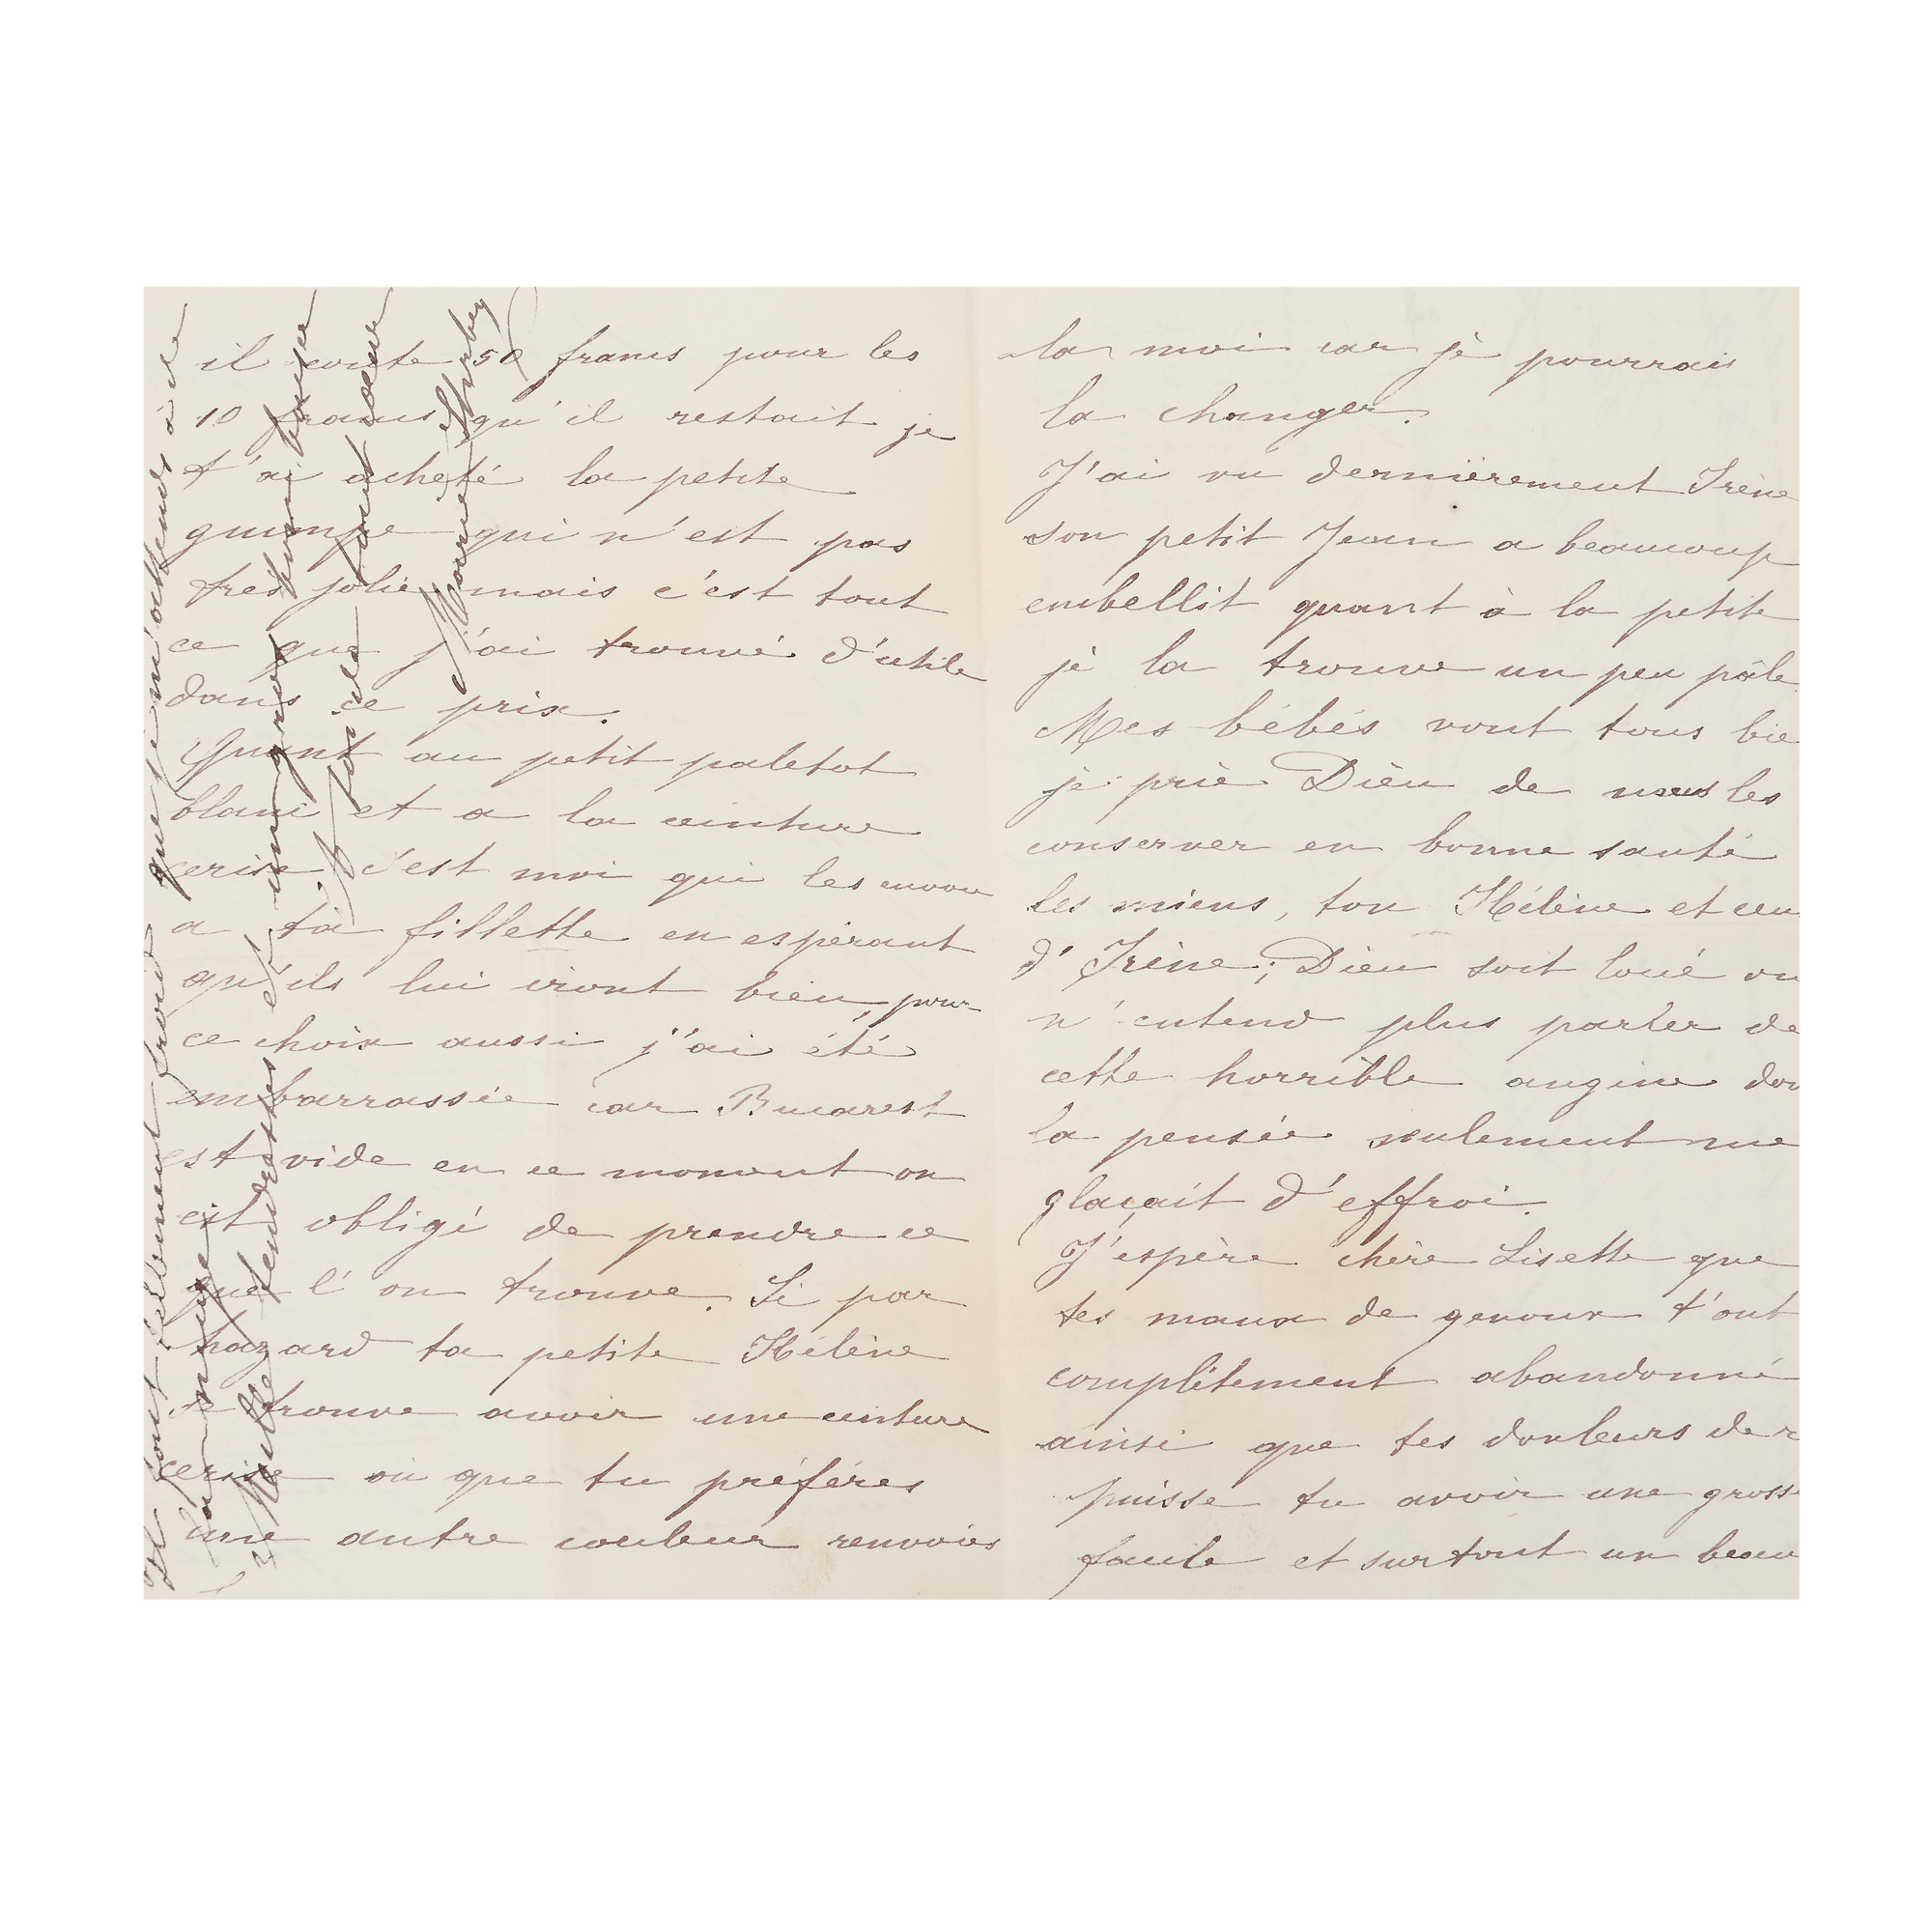 il coute 50 francs pour les
10 francs qu'il restait je
t'ai acheté la petite
guimpe qui n'est pas
très jolie mais c'est tout
ce que j'ai trouvé d'utile
dans ce prix.
Quant au petit paletot
blanc et a la ceinture
cerise c'est moi qui les envoie
a ta fillette en espérant
qu'ils lui iront bien, pour
ce choix aussi j'ai été
embarrassée car Bucarest
est vide en ce moment on
est obligé de prendre ce
que l'on trouve. Si par
hazard ta petite Hélène
se trouve avoir une ceinture
cerise où que tu préféres
une autre couleur renvoies
la moi car je pourrais
la changer.
J'ai vu dernièrement Irène
son petit Jean a beaucoup
embellit quant à la petite
je la trouve un peu pâle
Mes bébés vont tous bie
je prie Dieu de nous les
conserver en bonne santé
les miens, ton Hélène et ceu
d'Irène; Dieu soit loué on
n'entend plus parler de
cette horrible angine don
la pensée seulement me
glaçait d'effroi.
J'espère chère Lisette que
tes maux de genoux t'ont
complètement abandonné
ainsi que tes douleurs de r
puisse tu avoir une gross
facile et surtout un beau
Il fait tellement froid que je m'attends à de
la neige
Mille tendresses et un gros baiser
de ta sœur
Marie